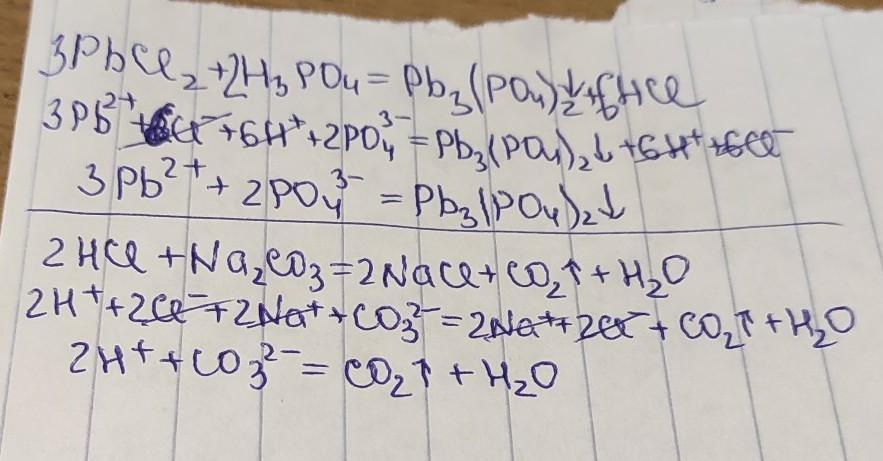 3PbCl₂+2H₃PO₄=Pb₃(PO₄)₂↓+6HCl
3Pb²⁺+6Cl⁻+6H⁺+2PO₄³⁻=Pb₃(PO₄)₂↓+6H⁺+6Cl⁻
3Pb²⁺+2PO₄³⁻=Pb₃(PO₄)₂↓
2HCl+Na₂CO₃=2NaCl+CO₂↑+H₂O
2H⁺+2Cl⁻+2Na⁺+CO₃²⁻=2Na⁺+2Cl⁻+CO₂↑+H₂O
2H⁺+CO₃²⁻=CO₂↑+H₂O